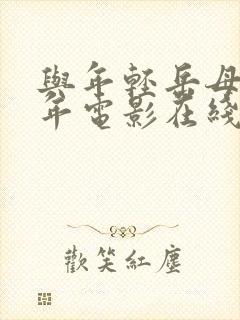 與年輕岳母
年電影在綫
歡笑紅塵